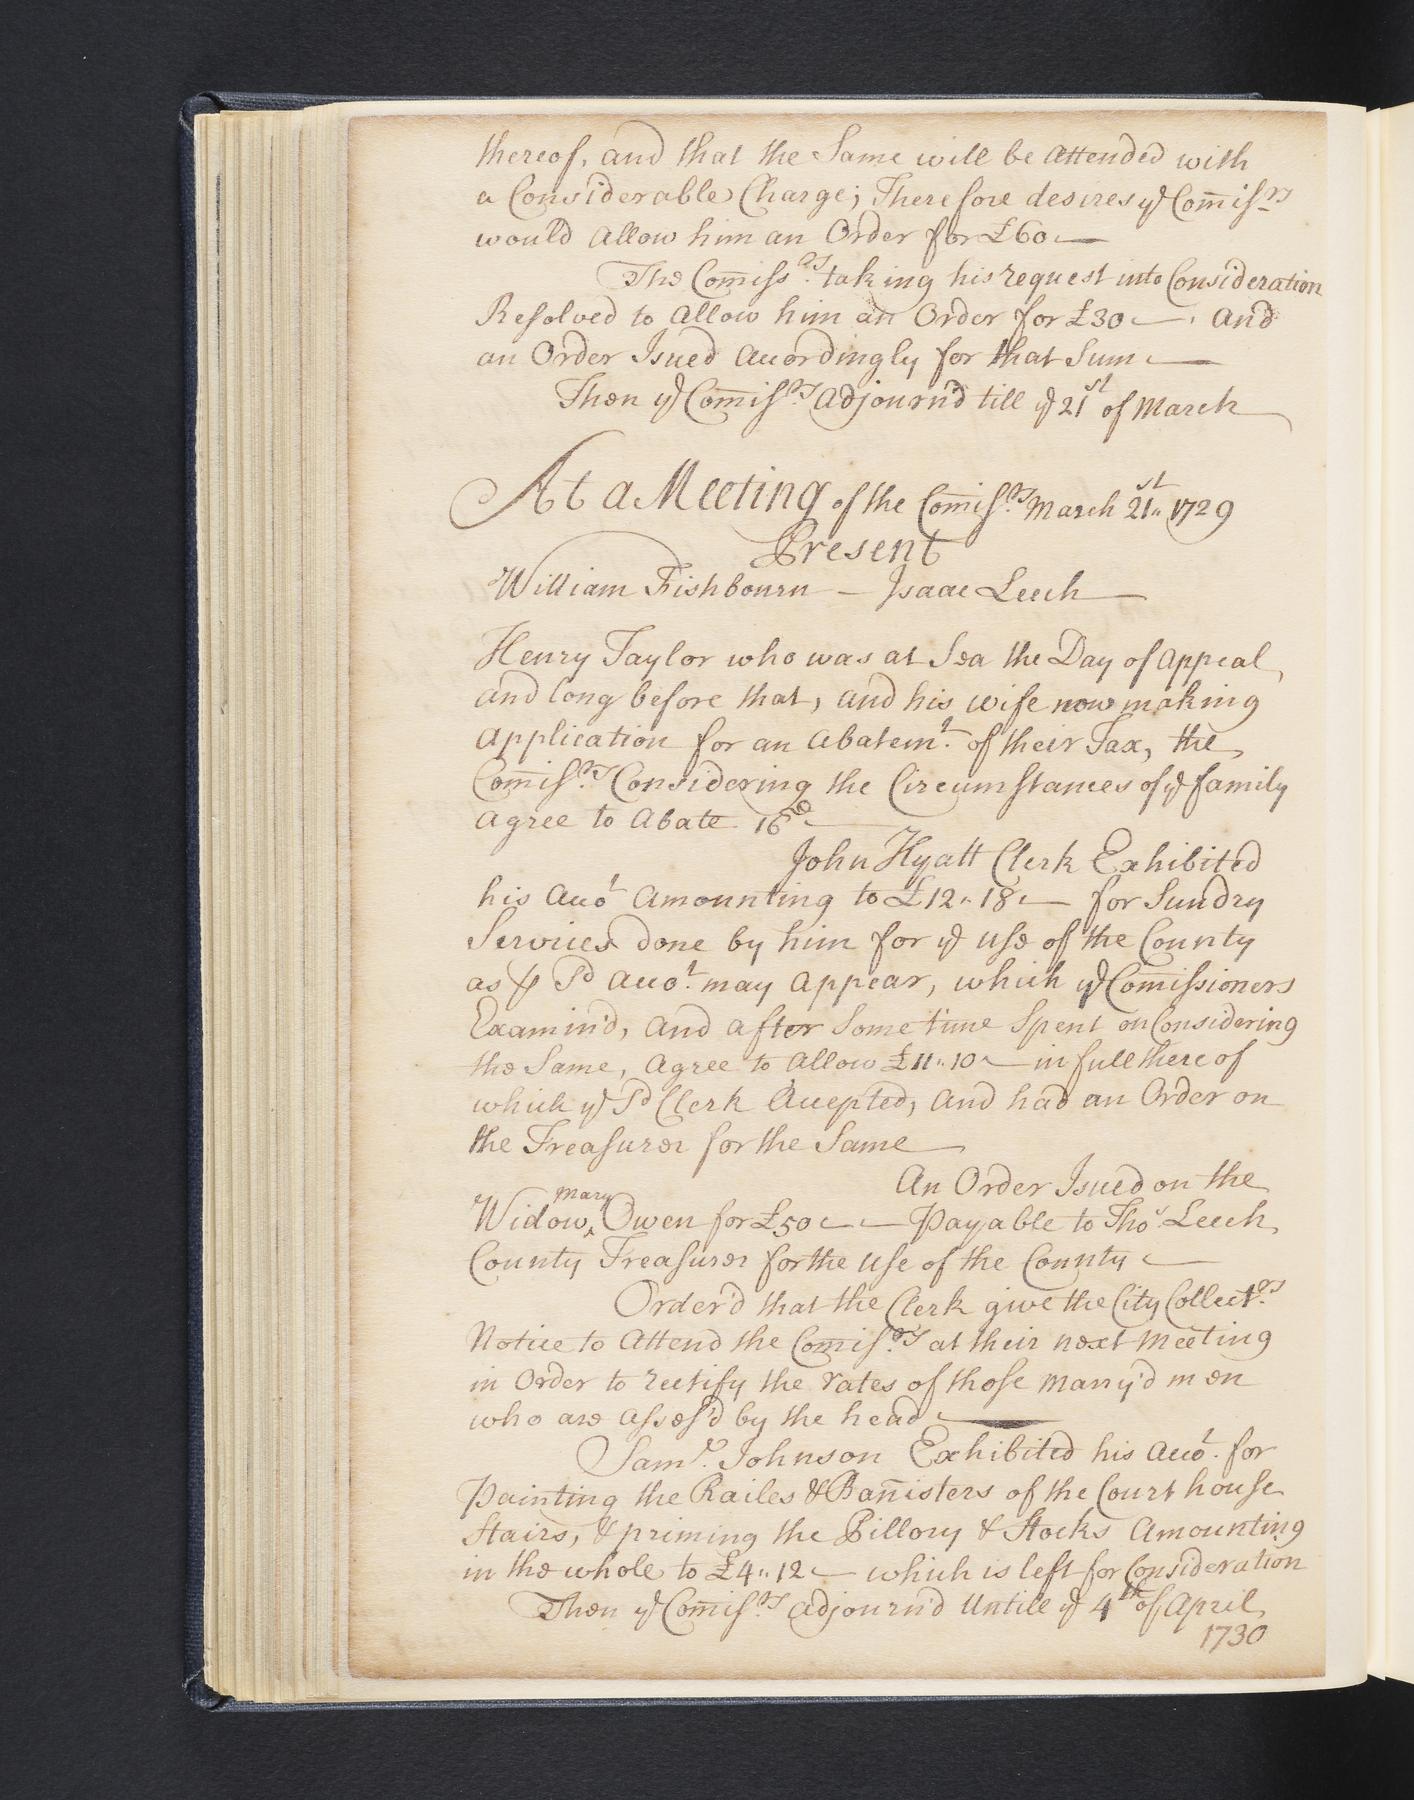 thereof, and that the Same will be Attended with
a Considerable Charge; Therefore desires ye Com̄isrs
would Allow him an Order for £60 —
The Com̄issrs taking his request into Consideration
Resolved to Allow him an Order for £30 — , And
an Order Isued Accordingly for that Sum —
Then ye Com̄isrs Adjourn'd till ye 21st of March
At a Meeting of the Com̄isrs March 21st 1729
Present
William Fishbourn — Isaac Leech —
Henry Taylor who was at Sea the Day of Appeal,
and long before that, and his wife now making
Application for an Abatemt. of their Tax, the
Com̄isrs Considering the Circumstances of ye family
Agree to Abate 16d —
John Hyatt Clerk Exhibited
his Accot Amounting to £12,, 18 — for Sundry
Services done by him for ye Use of the County
as ⅌ Sd Accot. may Appear, which ye Com̄issioners
Examin'd, and after Some time Spent on Considering
the Same, Agree to Allow £11,, 10 — in full thereof
which ye Sd Clerk Accepted, And had an Order on
the Treasurer for the Same —
An Order Isued on the
Widow ^Mary Owen for £50 — — Payable to Thos Leech,
County Treasurer for the Use of the County —
Order'd that the Clerk give the City Collectrs
Notice to Attend the Com̄isrs at their next Meeting
in Order to rectify the rates of those Marry'd men
who are Asses'd by the head —
Saml. Johnson Exhibited his Accot. for
Painting the Railes & Ban̄isters of the Court house
Stairs, & priming the Pillory & Stocks Amounting
in the whole to £4,, 12 — which is left for Consideration
Then ye Com̄isrs Adjourn'd Untill ye 4th of April,
1730